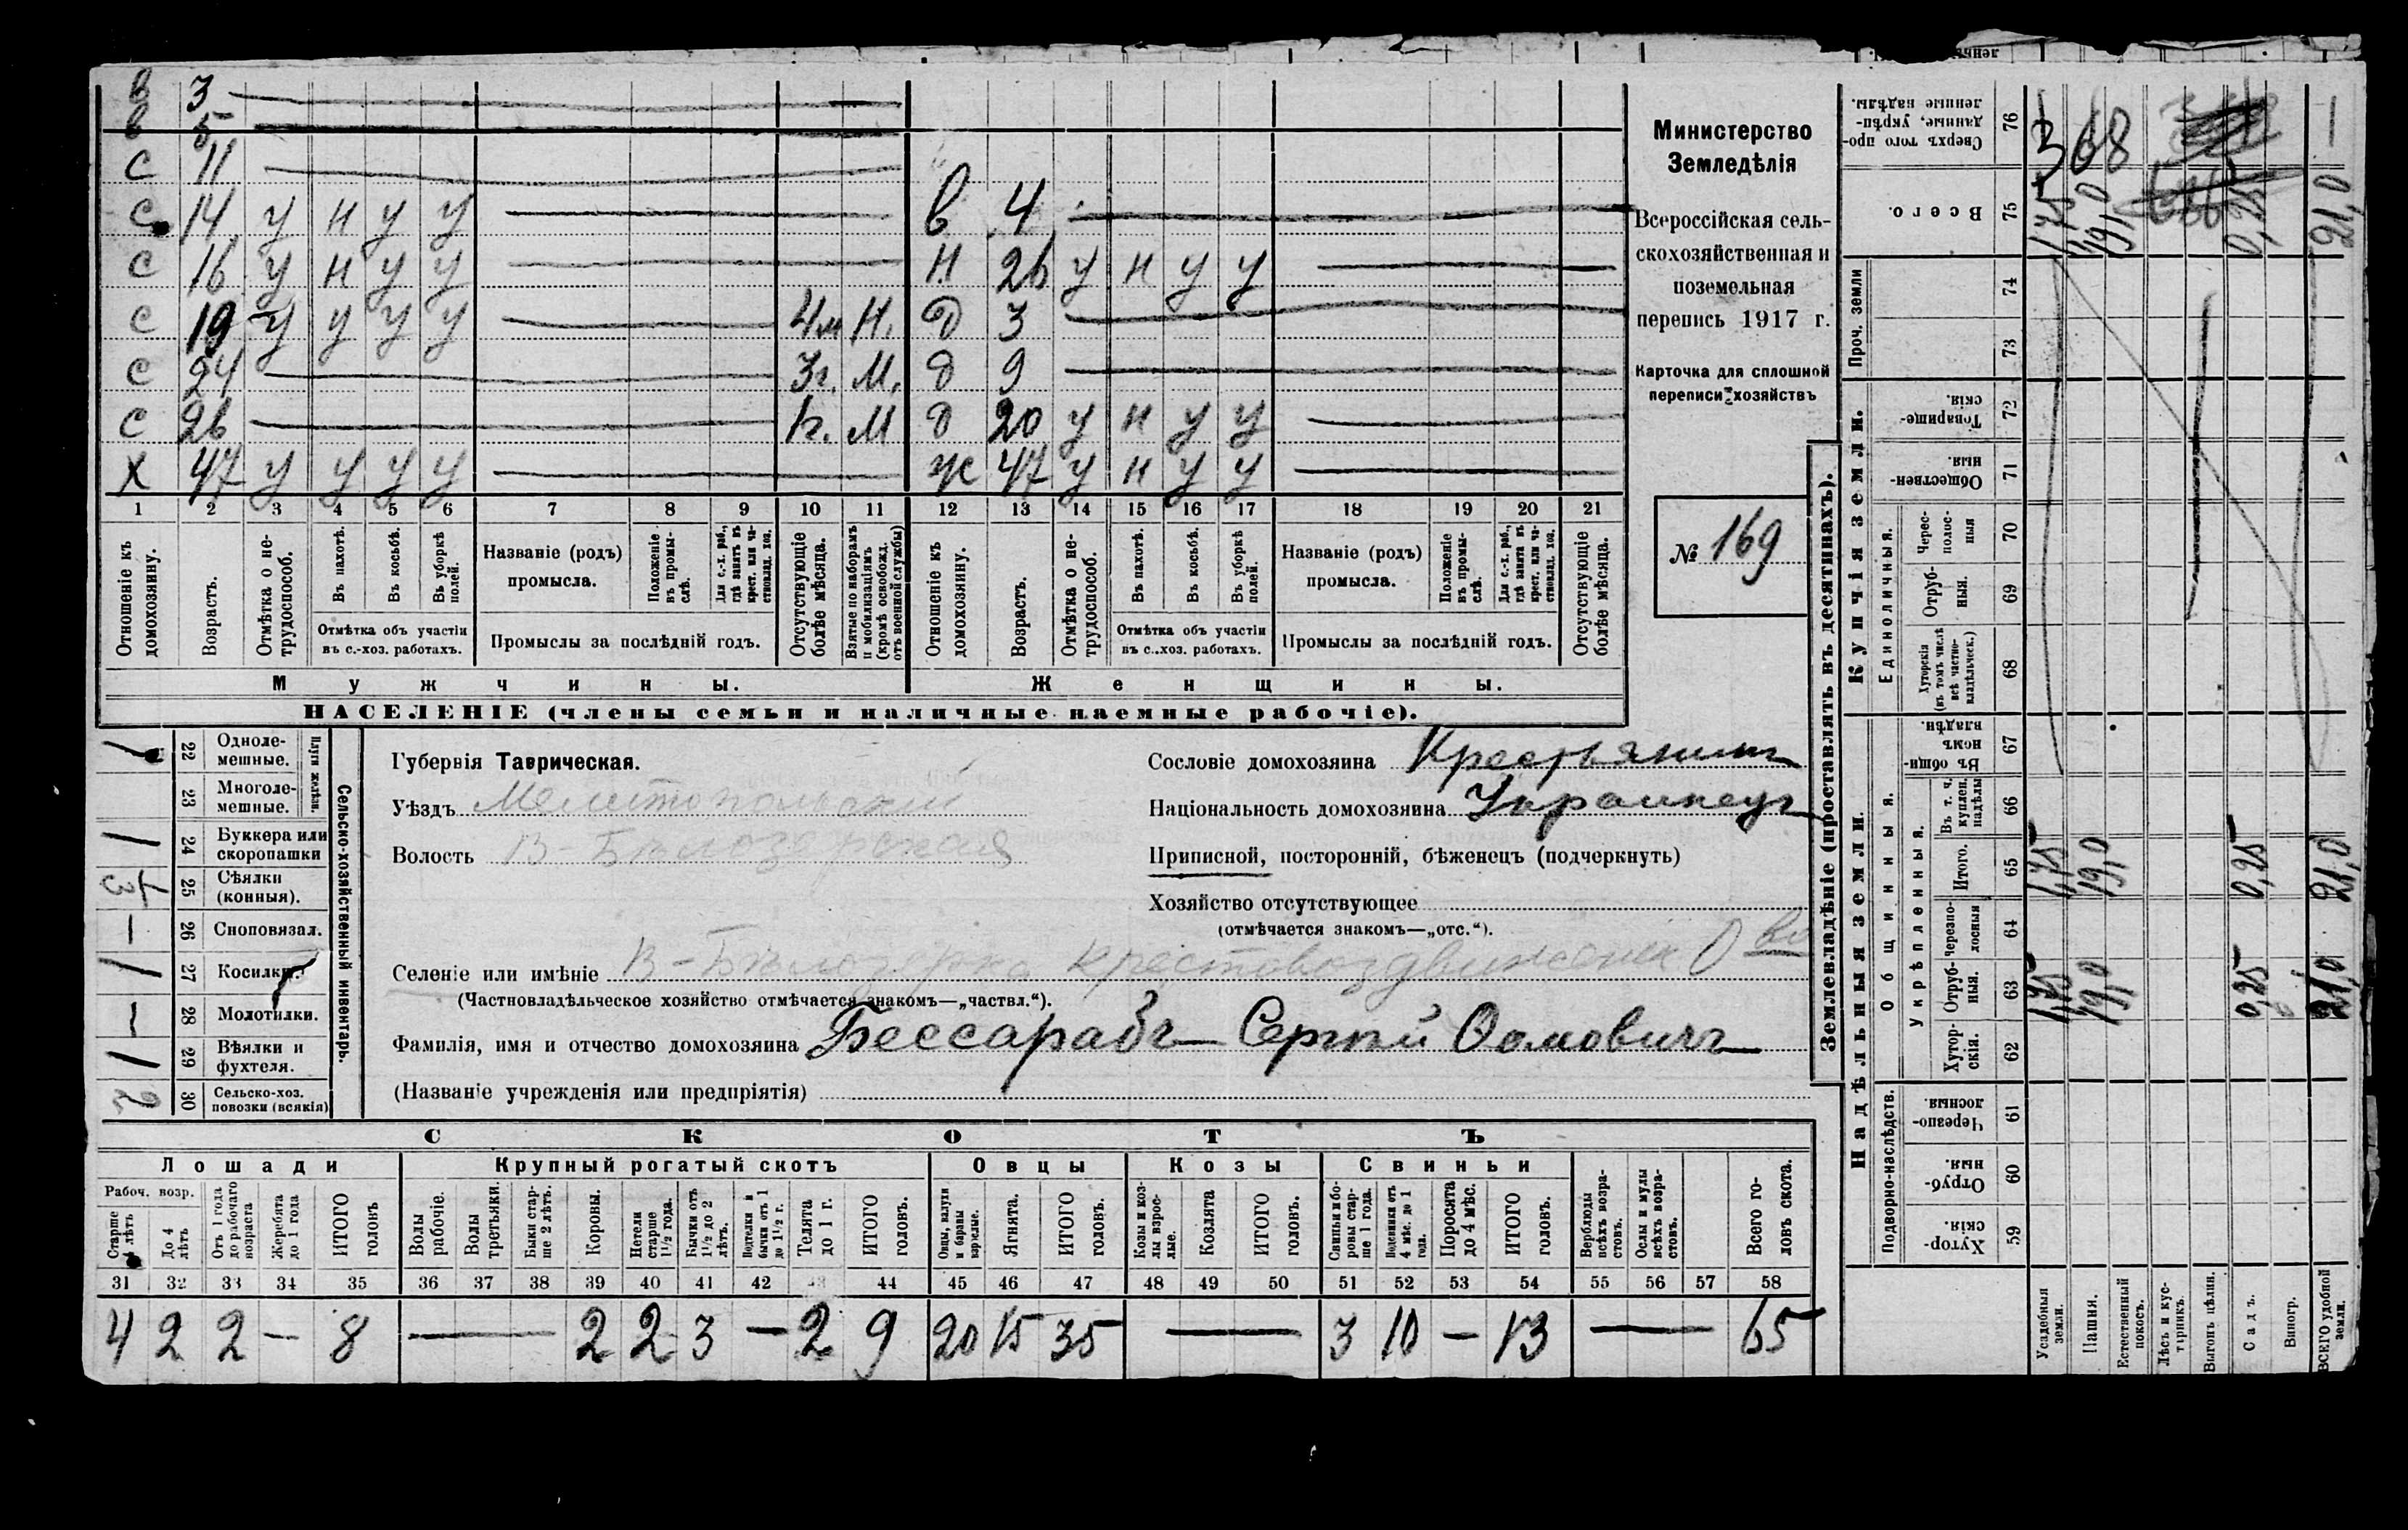 в 3
в 5
с 11
с 14 у н у у
с 16 у н у у
с 19 у у у у 4м Н.
с 24 3г. М.
с 26 1г. М
х 47 у у у у
в 4
н 26 у н у у
д 3
д 9
д 20 у н у у
ж 47 у н у у
1 2 3 4 5 6 7 8 9 10 11 12 13 14 15 16 17 18 19 20 21
Отношеніе къ домохозяину.
Возрастъ.
Отмѣтка о не-трудоспособ.
Въ пахотѣ.
Въ косьбѣ.
Въ уборкѣ полей.
Отмѣтка объ участіи въ с.-хоз. работахъ.
Названіе (родъ) промысла.
Положеніе въ промы-слѣ.
Для с.-х. раб., гдѣ занятъ въ крест. или ча-стновлад. хоз.
Промыслы за послѣдній годъ.
Отсутствующіе болѣе мѣсяца.
Взятые по наборамъ и мобилизаціямъ (кромѣ освобожд. отъ военной службы)
Отношеніе къ домохозяину.
Возрастъ.
Отмѣтка о не-трудоспособ.
Въ пахотѣ.
Въ косьбѣ.
Въ уборкѣ полей.
Отмѣтка объ участіи въ с..хоз. работахъ.
Названіе (родъ) промысла.
Положеніе въ промы-слѣ.
Для с.-х. раб., гдѣ занята въ крест. или ча-стновлад. хоз.
Промыслы за послѣдній годъ.
Отсутствующіе болѣе мѣсяца.
Мужчины.
Женщины.
НАСЕЛЕНІЕ (члены семьи и наличные наемные рабочіе).
Министерство
Земледѣлія
Всероссійская сель-
скохозяйственная и
поземельная
перепись 1917 г.
Карточка для сплошной
переписи хозяйствъ
№ 169
22 Одноле-мешные.
23 Многоле-мешные.
Плуги желѣзн.
24 Буккера или скоропашки
25 Сѣялки (конныя).
26 Сноповязал.
27 Косилки.
28 Молотилки.
29 Вѣялки и фухтеля.
30 Сельско-хоз. повозки (всякія) 2
Сельско-хозяйственный инвентарь.
Губернія Таврическая.
Уѣздъ Мелитопольскій
Волость В-Бѣлозерская
Сословіе домохозяина Крестьянинъ
Національность домохозяина Украинецъ
Приписной, посторонній, бѣженецъ (подчеркнуть)
Хозяйство отсутствующее
(отмѣчается знакомъ—„отс.“).
Селеніе или имѣніе В-Бѣлозерка Крестовоздвиженск О во
(Частновладѣльческое хозяйство отмѣчается знакомъ—„частвл.“).
Фамилія, имя и отчество домохозяина Бессарабъ Сергѣй Фомовичъ
(Названіе учрежденія или предпріятія)
СКОТЪ
Лошади
Крупный рогатый скотъ
Овцы
Козы
Свиньи
Рабоч. возр.
Старше 4 лѣтъ
До 4 лѣтъ
Отъ 1 года до рабочаго возраста
Жеребята до 1 года
ИТОГО головъ
Волы рабочіе.
Волы третьяки.
Быки стар-ше 2 лѣтъ.
Коровы.
Нетели старше 1½ года.
Бычки отъ 1½ до 2 лѣтъ.
Подтелки и бычки отъ 1 до 1½ г.
Телята до 1 г.
ИТОГО головъ.
Овцы, валухи и бараны взрослые.
Ягнята.
ИТОГО головъ.
Козы и коз-лы взрос-лые.
Козлята
ИТОГО головъ.
Свиньи и бо-ровы стар-ше 1 года.
Подсвинки отъ 4 мѣс. до 1 года.
Поросята до 4 мѣс.
ИТОГО головъ.
Верблюды всѣхъ возра-стовъ.
Ослы и мулы всѣхъ возра-стовъ.
Всего го-ловъ скота.
31 32 33 34 35 36 37 38 39 40 41 42 43 44 45 46 47 48 49 50 51 52 53 54 55 56 57 58
4 2 2 — 8 — 2 2 3 — 2 9 20 15 35 — 3 10 — 13 — 65
Землевладѣніе (проставлять въ десятинахъ).
Надѣльныя земли.
Купчія земли.
Проч. земли
Подворно-наслѣдств.
Общинныя.
Укрѣпленныя.
Единоличныя.
Хутор-скія. 59
Отруб-ныя. 60
Черезпо-лосныя. 61
Хутор-скія. 62
Отруб-ныя. 63
Черезпо-лосныя 64
Итого. 65
Въ т. ч. куплен. надѣлы 66
Въ общи-номъ владѣн. 67
Хуторскія (въ томъ числѣ всѣ частно-владѣльческ.) 68
Отруб-ныя. 69
Черес-полос-ныя 70
Обществен-ныя. 71
Товарище-скія. 72
73
74
Всего. 75
Сверхъ того про-данные, укрѣп-ленные надѣлы. 76
Усадебныя земли. 1,75 1,75 1,75
Пашня. 19,0 19,0 19,0
Естественный покосъ.
Лѣсъ и кус-тарникъ.
Выгонъ цѣлин.
Садъ. 0,25 0,25 0,25
Виногр.
ВСЕГО удобной земли. 21,0 21,0 21,0
368